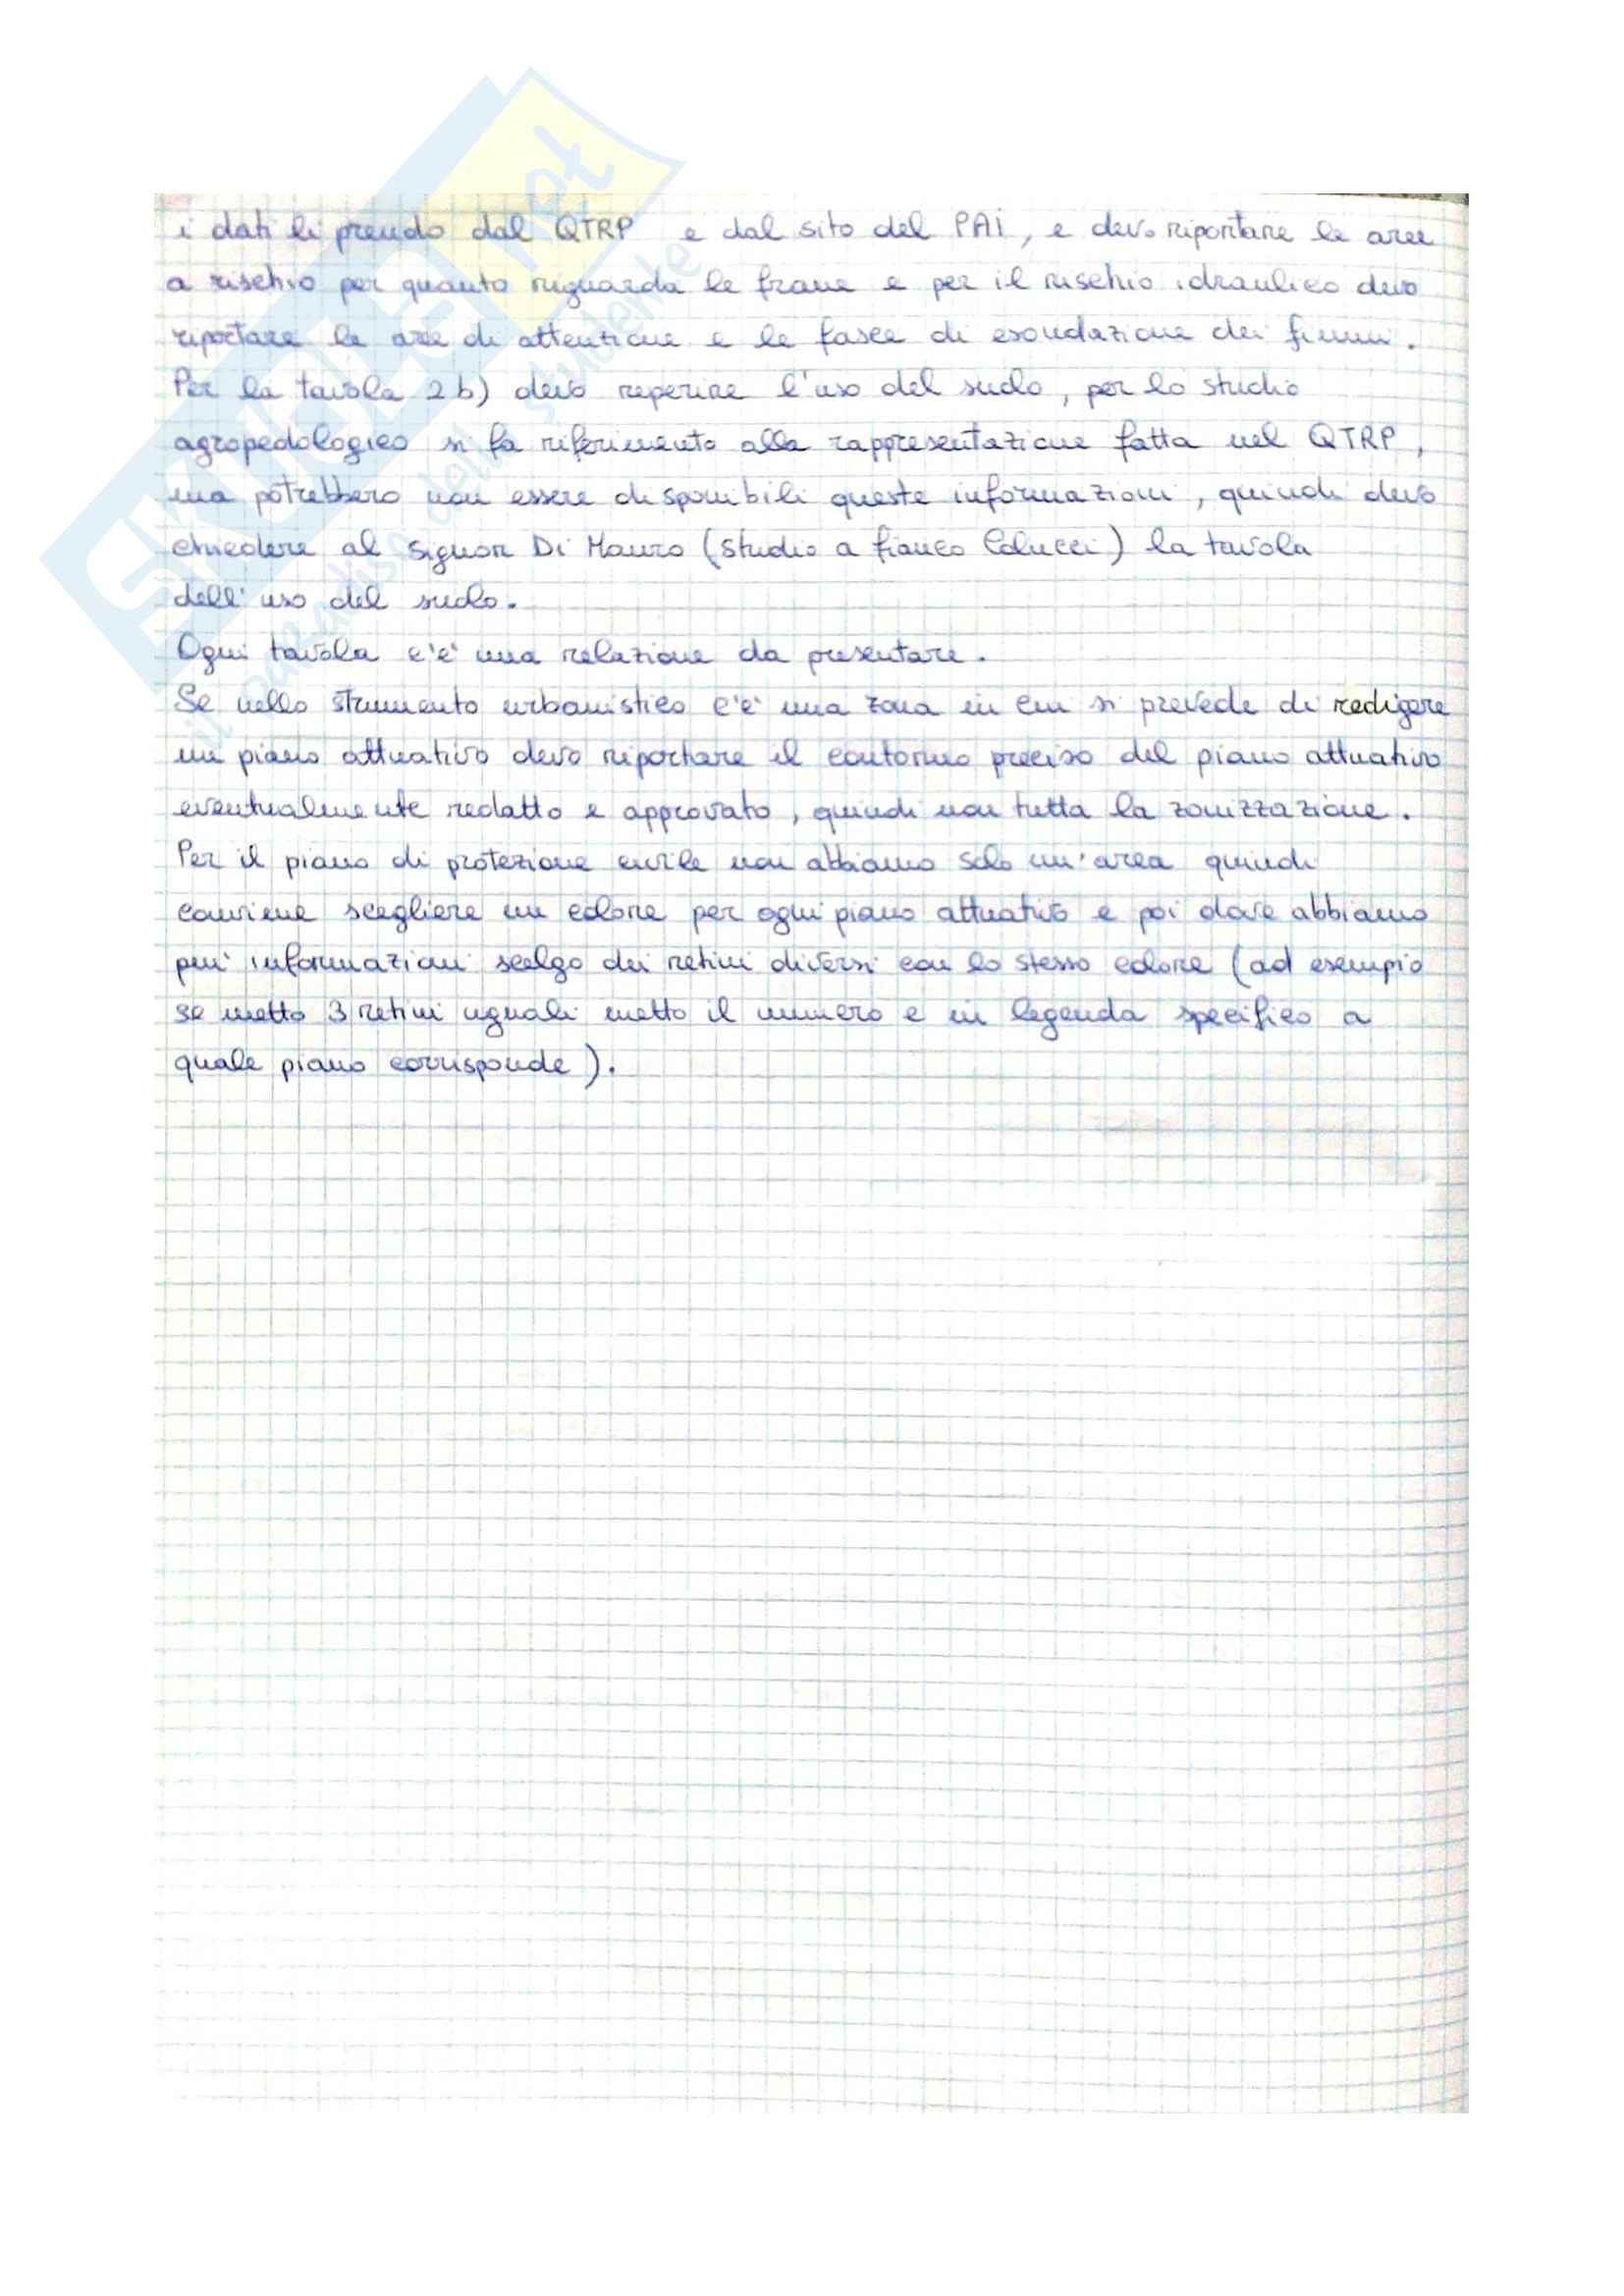 SKUOLA.net
il paradiso dello studente
i dati li prendo dal QTRP e dal sito del PAI, e devo riportare le aree
a rischio per quanto riguarda le frane e per il rischio idraulico devo
riportare le aree di attenzione e le fasce di esondazione dei fiumi.
Per la tavola 2b) devo reperire l'uso del suolo, per lo studio
agropedologico si fa riferimento alla rappresentazione fatta nel QTRP,
ma potrebbero non essere disponibili queste informazioni, quindi devo
chiedere al signor Di Mauro (studio a fianco Colucci) la tavola
dell'uso del suolo.
Ogni tavola c'e' una relazione da presentare.
Se nello strumento urbanistico c'e' una zona in cui si prevede di redigere
un piano attuativo devo riportare il contorno preciso del piano attuativo
eventualmente redatto e approvato, quindi non tutta la zonizzazione.
Per il piano di protezione civile non abbiamo solo un'area quindi
conviene scegliere un colore per ogni piano attuativo e poi dove abbiamo
piu' informazioni scelgo dei retini diversi con lo stesso colore (ad esempio
se metto 3 retini uguali metto il numero e in legenda specifico a
quale piano corrisponde).